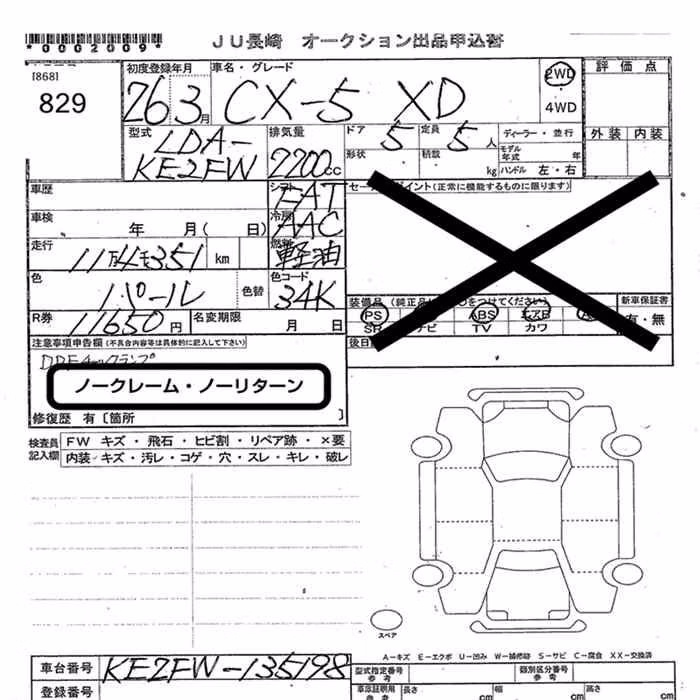 *0002009*
JU長崎 オークション出品申込書
[868]
829
初度登録年月 車名・グレード 2WD 評価点
26 3月 CX-5 XD 4WD
型式 排気量 ドア 定員 ディーラー・並行 外装 内装
LDA- 5 5人 モデル年式 年
KE2FW 2200cc 形状 積数 kg ハンドル 左・右
車歴 シフト FAT セールスポイント(正常に機能するものに限ります)
車検 年 月( 日) 冷房 AAC
走行 11万4千351 km 燃料 軽油
色 パール 色替 色コード 34K 装備品(純正品に○をつけてください) 新車保証書
R券 11650円 名変期限 月 日 PS ABS エアB 有・無
SR ナビ TV カワ
注意事項申告欄(不具合内容等は具体的に記入して下さい) 後日
DPFチェックランプ
ノークレーム・ノーリターン
修復歴 有〔箇所 〕
検査員記入欄 FW キズ・飛石・ヒビ割・リペア跡・×要
内装 キズ・汚レ・コゲ・穴・スレ・キレ・破レ
スペア
A-キズ E-エクボ U-凹み W-補修跡 S-サビ C-腐食 XX-交換済
車台番号 KE2FW-135198 型式指定番号 参考 類別区分番号 参考
登録番号 車庫証明用 参考 長さ cm 幅 cm 高さ cm